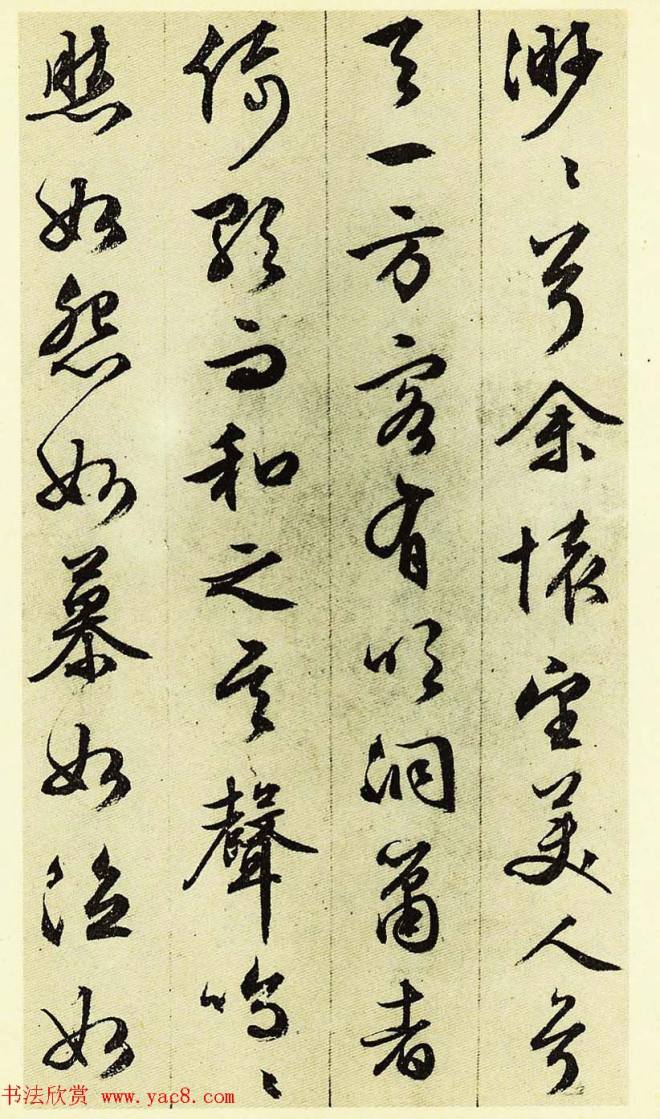 渺〻兮余懷望美人兮
天一方客有吹洞簫者
倚歌而和之其聲嗚〻
然如怨如慕如泣如
书法欣赏 www.yac8.com